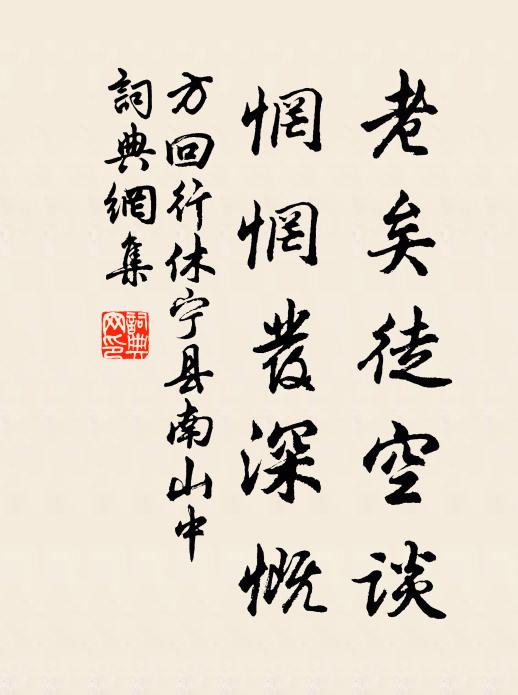 老矣徒空谈
惘惘發深慨
方回行休宁县南山中
詞典網集
詞典
网印